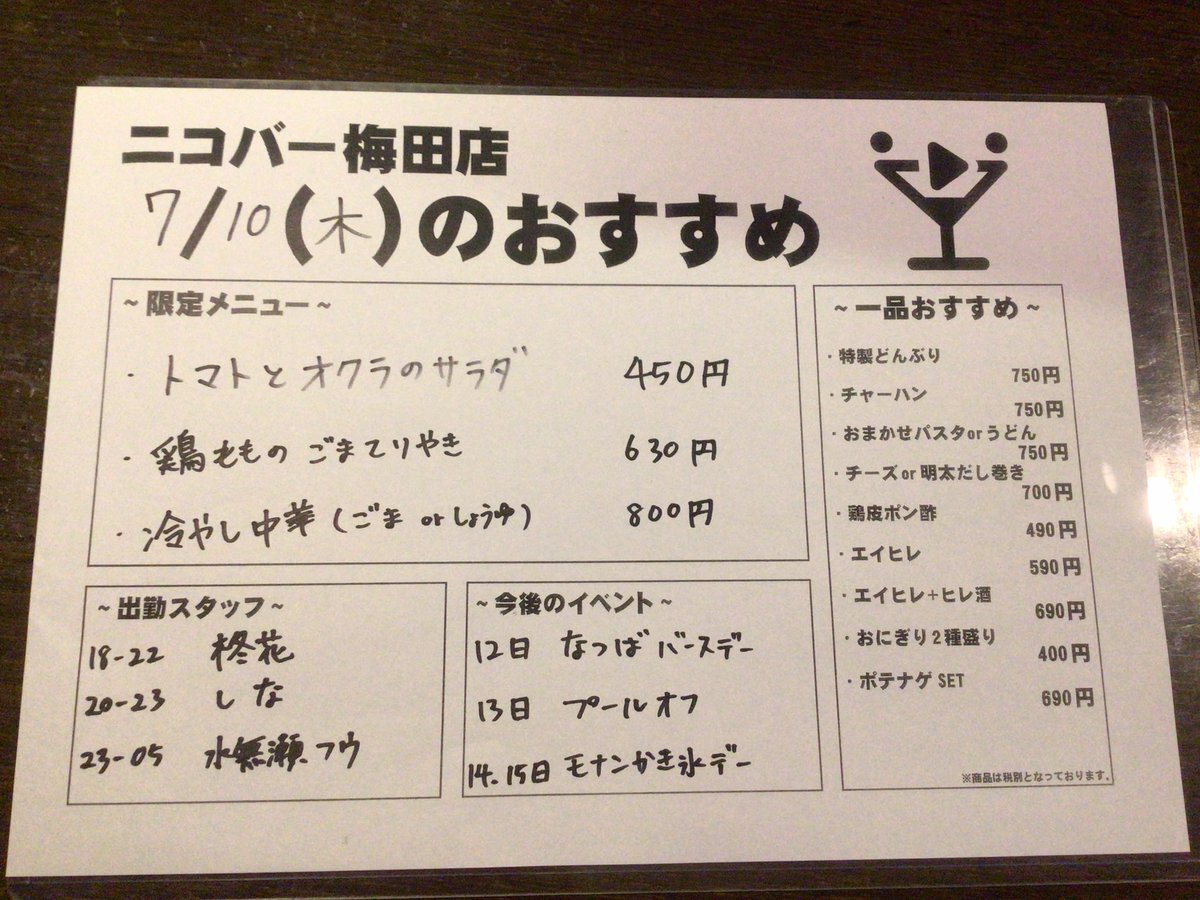 ニコバー梅田店
7/10(木)のおすすめ
~限定メニュー~
・トマトとオクラのサラダ 450円
・鶏ももの ごまてりやき 630円
・冷やし中華(ごま orしょうゆ) 800円
~出勤スタッフ~
18-22 柊花
20-23 しな
23-05 水無瀬フウ
~今後のイベント~
12日 なつばバースデー
13日 プールオフ
14.15日 モナンかき氷デー
~一品おすすめ~
・特製どんぶり
750円
・チャーハン
750円
・おまかせパスタorうどん
750円
・チーズor明太だし巻き
700円
・鶏皮ポン酢
490円
・エイヒレ
590円
・エイヒレ+ヒレ酒
690円
・おにぎり2種盛り
400円
・ポテナゲSET
690円
※商品は税別となっております。